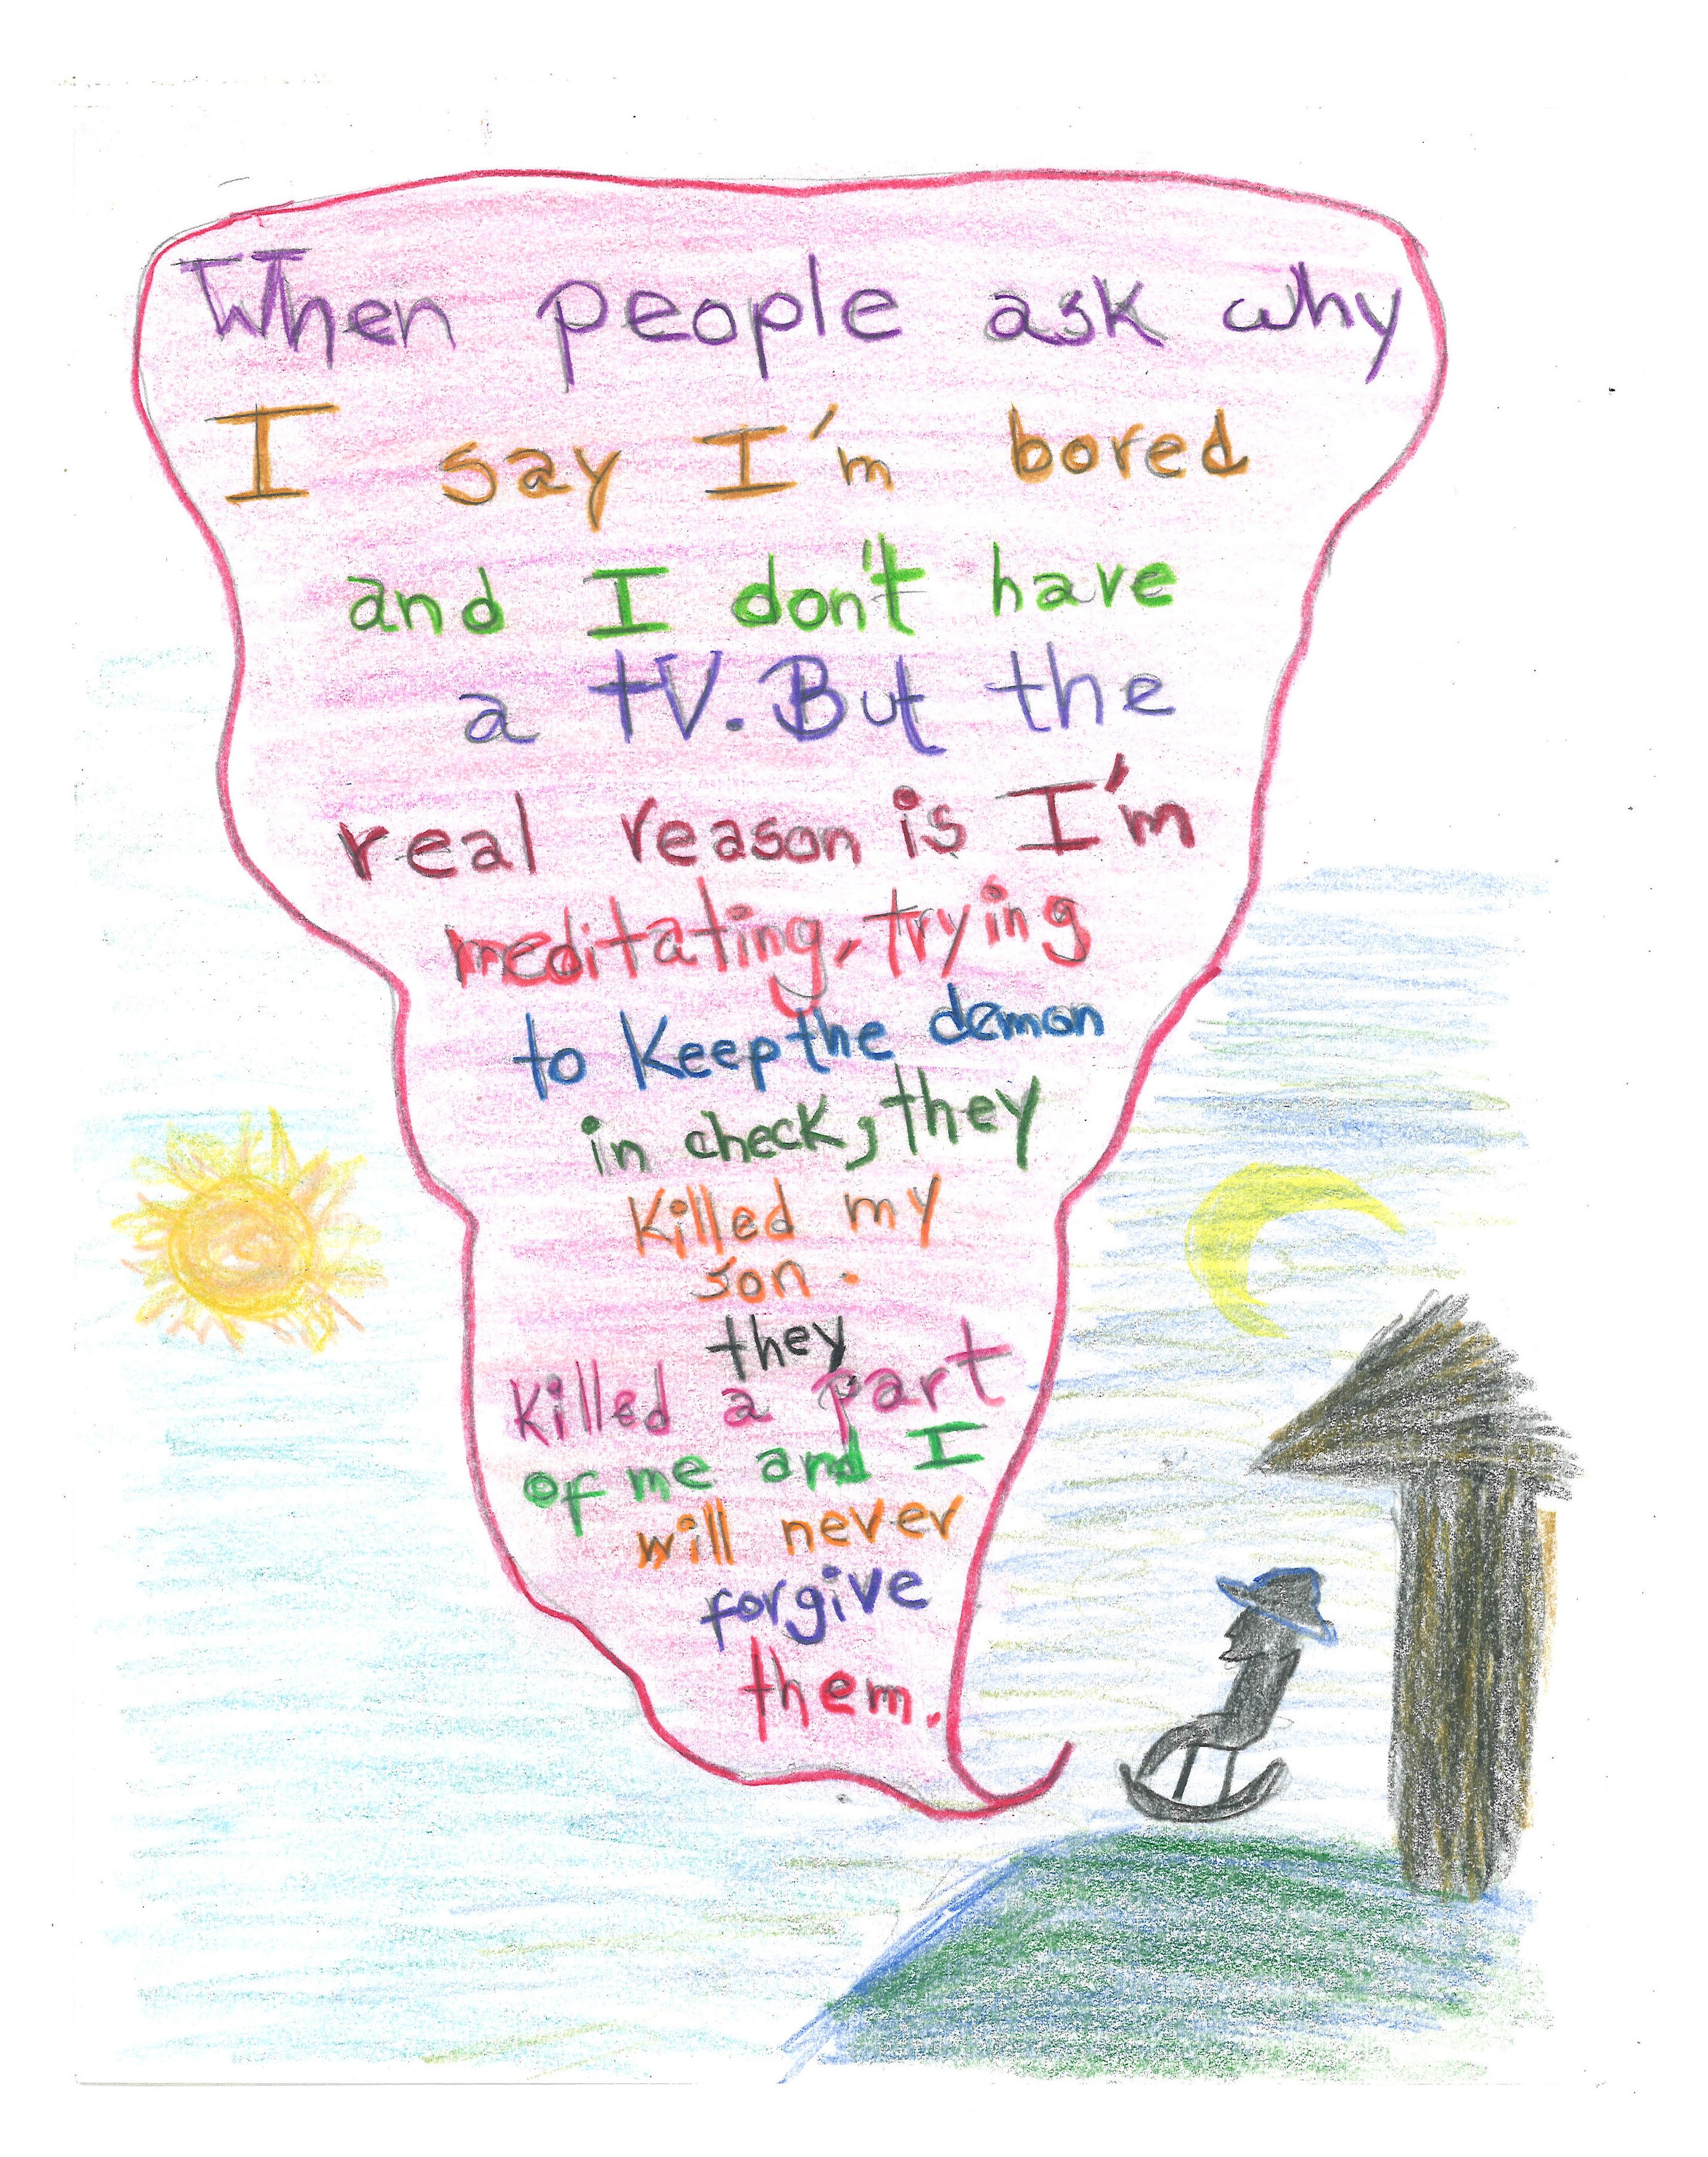 When people ask why
I say I'm bored
and I don't have
a tV. But the
real reason is I'm
meditating, trying
to Keep the demon
in check, they
Killed my
son.
they
Killed a part
of me and I
will never
forgive
them.